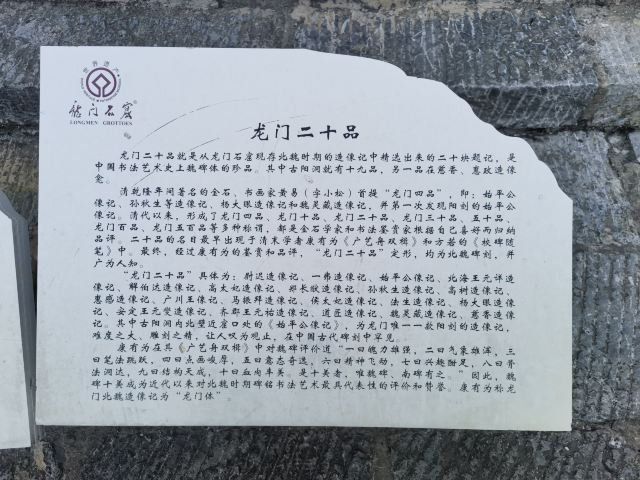 世界遗产
龙门石窟
LONGMEN GROTTOES
龙门二十品
龙门二十品就是从龙门石窟现存北魏时期的造像记中精选出来的二十块题记，是
中国书法艺术史上魏碑体的珍品。其中古阳洞就有十九品，另一品在慈香、惠政造像
龛。
清乾隆年间著名的金石、书画家黄易（字小松）首提“龙门四品”，即：始平公
像记、孙秋生等造像记、杨大眼造像记和魏灵藏造像记，并第一次发现阳刻的始平公
像记。清代以来，形成了龙门四品、龙门十品、龙门二十品、龙门三十品、五十品、
龙门百品、龙门五百品等多种称谓，都是金石学家和书法鉴赏家根据自己喜好而归纳
品评。二十品的名目最早出现于清末学者康有为《广艺舟双楫》和方若的《校碑随
笔》中。最终，经过康有为的鉴赏和品评，“龙门二十品”定形，均为北魏碑刻，并
广为人知。
“龙门二十品”具体为：尉迟造像记、一弗造像记、始平公像记、北海王元详造
像记、解伯达造像记、高太妃造像记、郑长猷造像记、孙秋生造像记、高树造像记、
惠感造像记、广川王像记、马振拜造像记、侯太妃造像记、法生造像记、杨大眼造像
记、安定王元燮造像记、齐郡王元祐造像记、道匠造像记、魏灵藏造像记、慈香造像
记。其中古阳洞内北壁近窟口处的《始平公像记》，为龙门唯一一款阳刻的造像记，
难度之大、雕刻之精，让人叹为观止，在中国古代碑刻中罕见。
康有为在其《广艺舟双楫》中对魏碑评价道“一曰魄力雄强，二曰气象雄浑，三
曰笔法跳跃，四曰点画峻厚，五曰意态奇逸，六曰精神飞动，七曰兴趣酣足，八曰骨
法洞达，九曰结构天成，十曰血肉丰美。是十美者，唯魏碑、南碑有之。”因此，魏
碑十美成为近代以来对北魏时期碑铭书法艺术最具代表性的评价和赞誉。康有为称龙
门北魏造像记为“龙门体”